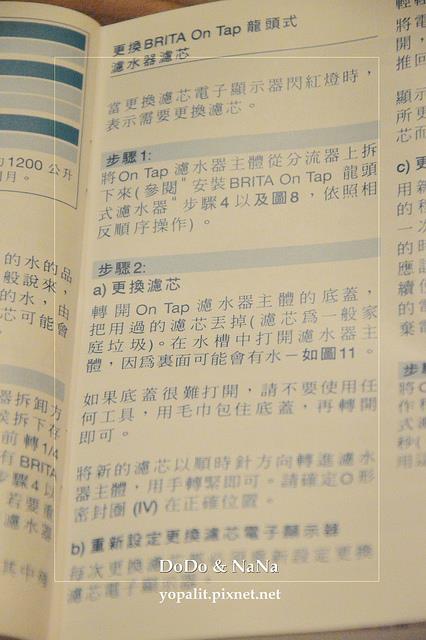 更換BRITA On Tap 龍頭式
濾水器濾芯
當更換濾芯電子顯示器閃紅燈時，
表示需要更換濾芯。
步驟1:
將On Tap 濾水器主體從分流器上拆
下來(參閱"安裝BRITA On Tap 龍頭
式濾水器"步驟4以及圖8，依照相
反順序操作)。
步驟2:
a) 更換濾芯
轉開On Tap 濾水器主體的底蓋，
把用過的濾芯丟掉(濾芯為一般家
庭垃圾)。在水槽中打開濾水器主
體，因為裏面可能會有水－如圖11。
如果底蓋很難打開，請不要使用任
何工具，用毛巾包住底蓋，再轉開
即可。
將新的濾芯以順時針方向轉進濾水
器主體，用手轉緊即可。請確定O形
密封圈 (IV) 在正確位置。
b) 重新設定更換濾芯電子顯示器
每次更換濾芯後必須重新設定更換
濾芯電子顯示器。
1200 公升
月。
的水的品
般說來，
的水，由
芯可能會
器拆卸方
前轉1/4
有 BRITA
步驟4以
若要重
濾水器
其中每
DoDo & NaNa
yopalit.pixnet.net